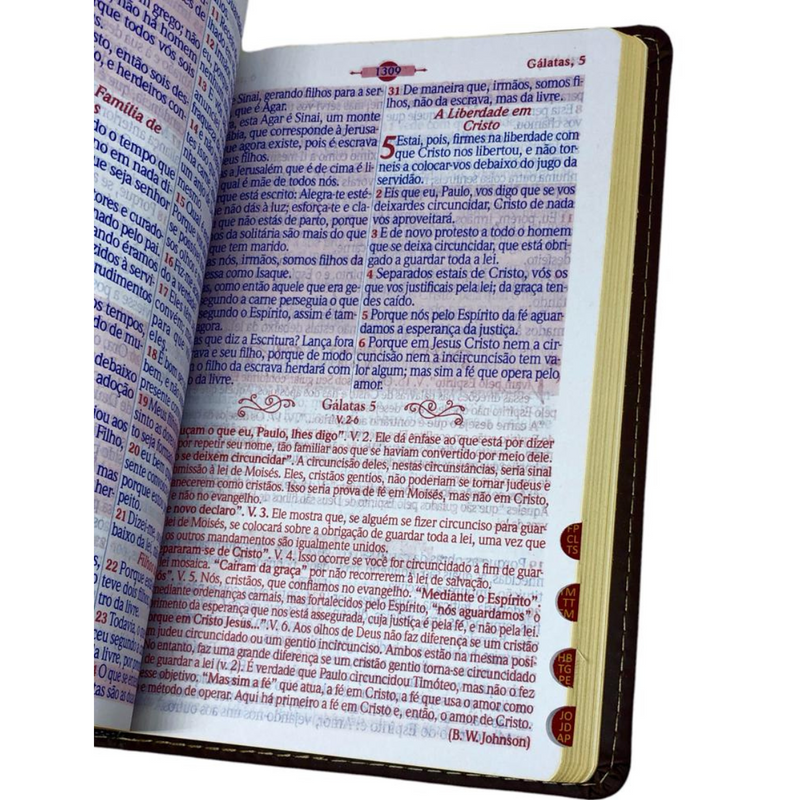 não há homem
todos vós sois
então sois des-
e herdeiros con-
Família de
o tempo que
em nada di-
seja senhor
ores e curado-
nado pelo pai
ndo éramos
zidos à servi-
rudimentos
tempos,
de mu-
debaixo
adoção
aos
Filho.
mas
peito.
21 Dizei-me
baixo da lei,
22 Porque está
teve dois filhos
tro da livre.
23 Todavia, o
ceu segundo a
da livre, por
24 O que se en-
1309
Gálatas, 5
e Sinai, gerando filhos para a ser-
que é Agar.
esta Agar é Sinai, um monte
bia, que corresponde à Jerusa-
e agora existe, pois é escrava
seus filhos.
a Jerusalém que é de cima é li-
qual é mãe de todos nós.
que está escrito: Alegra-te esté-
e não dás à luz; esforça-te e cla-
que não estás de parto, porque
da solitária são mais do que
que tem marido.
nós, irmãos, somos filhos da
essa como Isaque.
como então aquele que era ge-
egundo a carne perseguia o que
segundo o Espírito, assim é tam-
agora.
que diz a Escritura? Lança fora
ava e seu filho, porque de modo
o filho da escrava herdará com
da livre.
31 De maneira que, irmãos, somos fi-
lhos, não da escrava, mas da livre.
A Liberdade em
Cristo
5 Estai, pois, firmes na liberdade com
que Cristo nos libertou, e não tor-
neis a colocar-vos debaixo do jugo da
servidão.
2 Eis que eu, Paulo, vos digo que se vos
deixardes circuncidar, Cristo de nada
vos aproveitará.
3 E de novo protesto a todo o homem
que se deixa circuncidar, que está obri-
gado a guardar toda a lei.
4 Separados estais de Cristo, vós os
que vos justificais pela lei; da graça ten-
des caído.
5 Porque nós pelo Espírito da fé aguar-
damos a esperança da justiça.
6 Porque em Jesus Cristo nem a cir-
cuncisão nem a incircuncisão tem va-
lor algum; mas sim a fé que opera pelo
amor.
Gálatas 5
V. 2-6
uçam o que eu, Paulo, lhes digo". V. 2. Ele dá ênfase ao que está por dizer
por repetir seu nome, tão familiar aos que se haviam convertido por meio dele.
se deixem circuncidar". A circuncisão deles, nestas circunstâncias, seria sinal
missão à lei de Moisés. Eles, cristãos gentios, não poderiam se tornar judeus e
necerem como cristãos. Isso seria prova de fé em Moisés, mas não em Cristo,
e não no evangelho.
e novo declaro". V. 3. Ele mostra que, se alguém se fizer circunciso para guar-
lei de Moisés, se colocará sobre a obrigação de guardar toda a lei, uma vez que
os outros mandamentos são igualmente unidos.
pararam-se de Cristo". V. 4. Isso ocorre se você for circuncidado a fim de guar-
ei mosaica. "Caíram da graça" por não recorrerem à lei de salvação.
ós". V. 5. Nós, cristãos, que confiamos no evangelho. "Mediante o Espírito".
mediante ordenanças carnais, mas fortalecidos pelo Espírito, "nós aguardamos" o
rimento da esperança que nos está assegurada, cuja justiça é pela fé, e não pela lei.
orque em Cristo Jesus...". V. 6. Aos olhos de Deus não faz diferença se um cristão
m judeu circuncidado ou um gentio incircunciso. Ambos estão na mesma posi-
No entanto, faz uma grande diferença se um cristão gentio torna-se circuncidado
de guardar a lei (v. 2). É verdade que Paulo circuncidou Timóteo, mas não o fez
esse objetivo. "Mas sim a fé" que atua, a fé em Cristo, a fé que usa o amor como
e método de operar. Aqui há primeiro a fé em Cristo e, então, o amor de Cristo.
(B. W. Johnson)
FP
CL
TS
TM
TT
FM
HB
TG
PE
JO
JD
AP